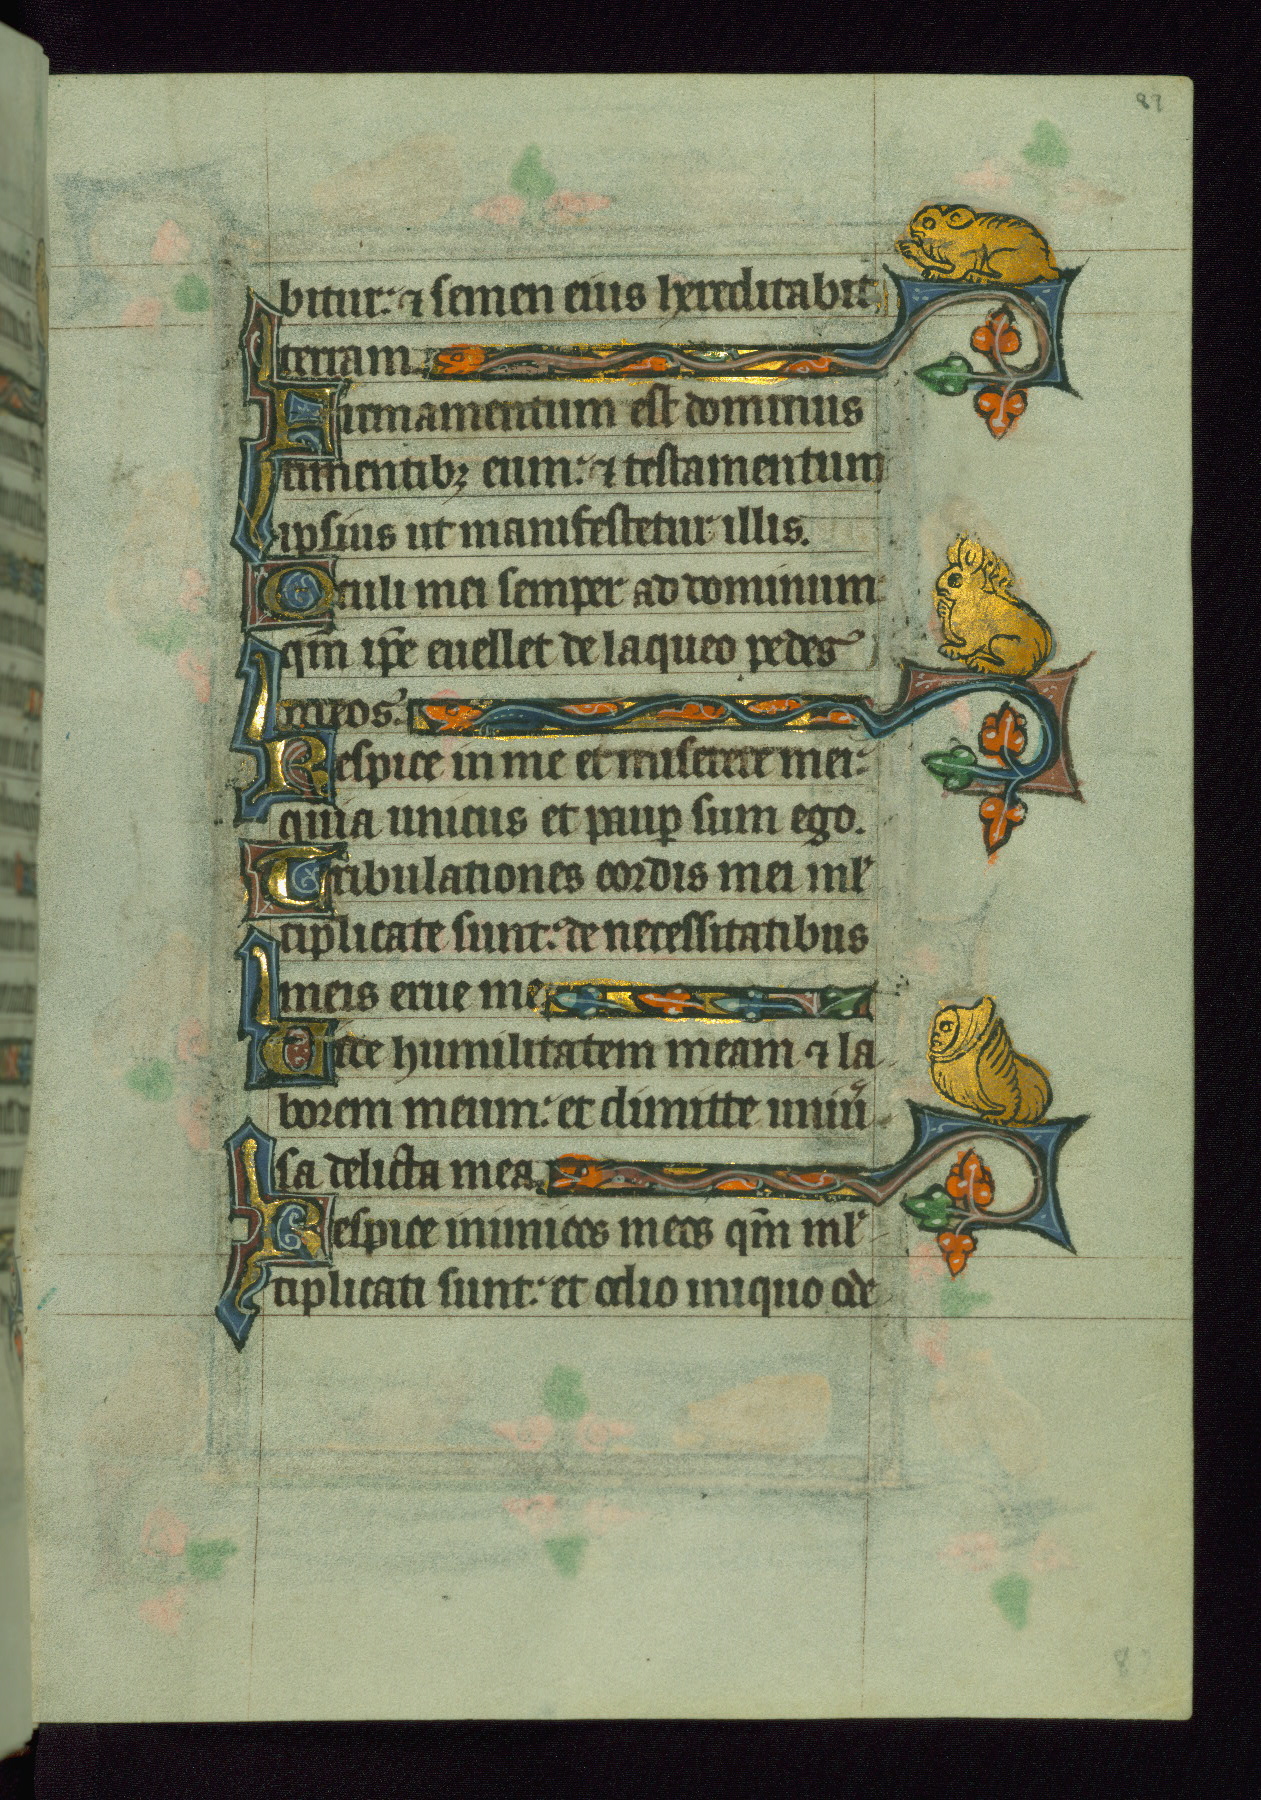 89
bitur: ⁊ semen eius hereditabit
terram.
Firmamentum est dominus
timentibꝫ eum: ⁊ testamentum
ipsius ut manifestetur illis.
Oculi mei semper ad dominum
qm̄ ip̄e euellet de laqueo pedes
meos.
Respice in me et miserere mei:
quia unicus et paup̲ sum ego.
Tribulationes cordis mei ml̛
tiplicate sunt: de necessitatibus
meis erue me.
Uide humilitatem meam ⁊ la
borem meum: et dimitte uniư
sa delicta mea.
Respice inimicos meos qm̄ ml̛
tiplicati sunt: et odio iniquo ode